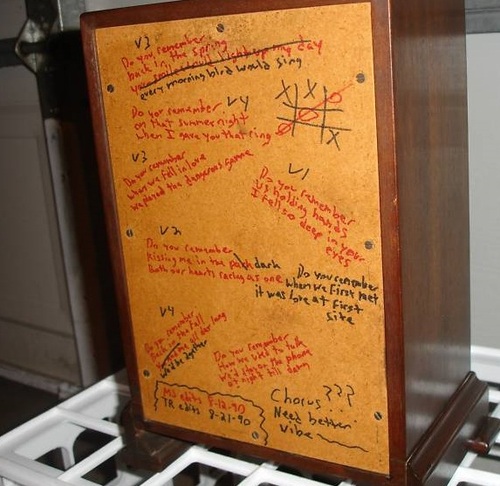 V3
Do you remember
back in the spring
your smile would light up my day
every morning bird would sing
V4
Do you remember
on that summer night
when I gave you that ring
X X O
O
O X
V3
Do you remember
when we fell in love
we played the dangerous game
V1
Do you remember
us holding hands
I fell so deep in your
eyes
V2
Do you remember
Kissing me in the park dark
Both our hearts racing as one
Do you remember
when we first met
it was love at first
site
V4
Do you remember
Back in the fall
all day long
Do you remember
How we used to talk
on the phone
at night till dawn
MJ edits 8-12-90
TR edits 8-21-90
Chorus???
Need better
vibe